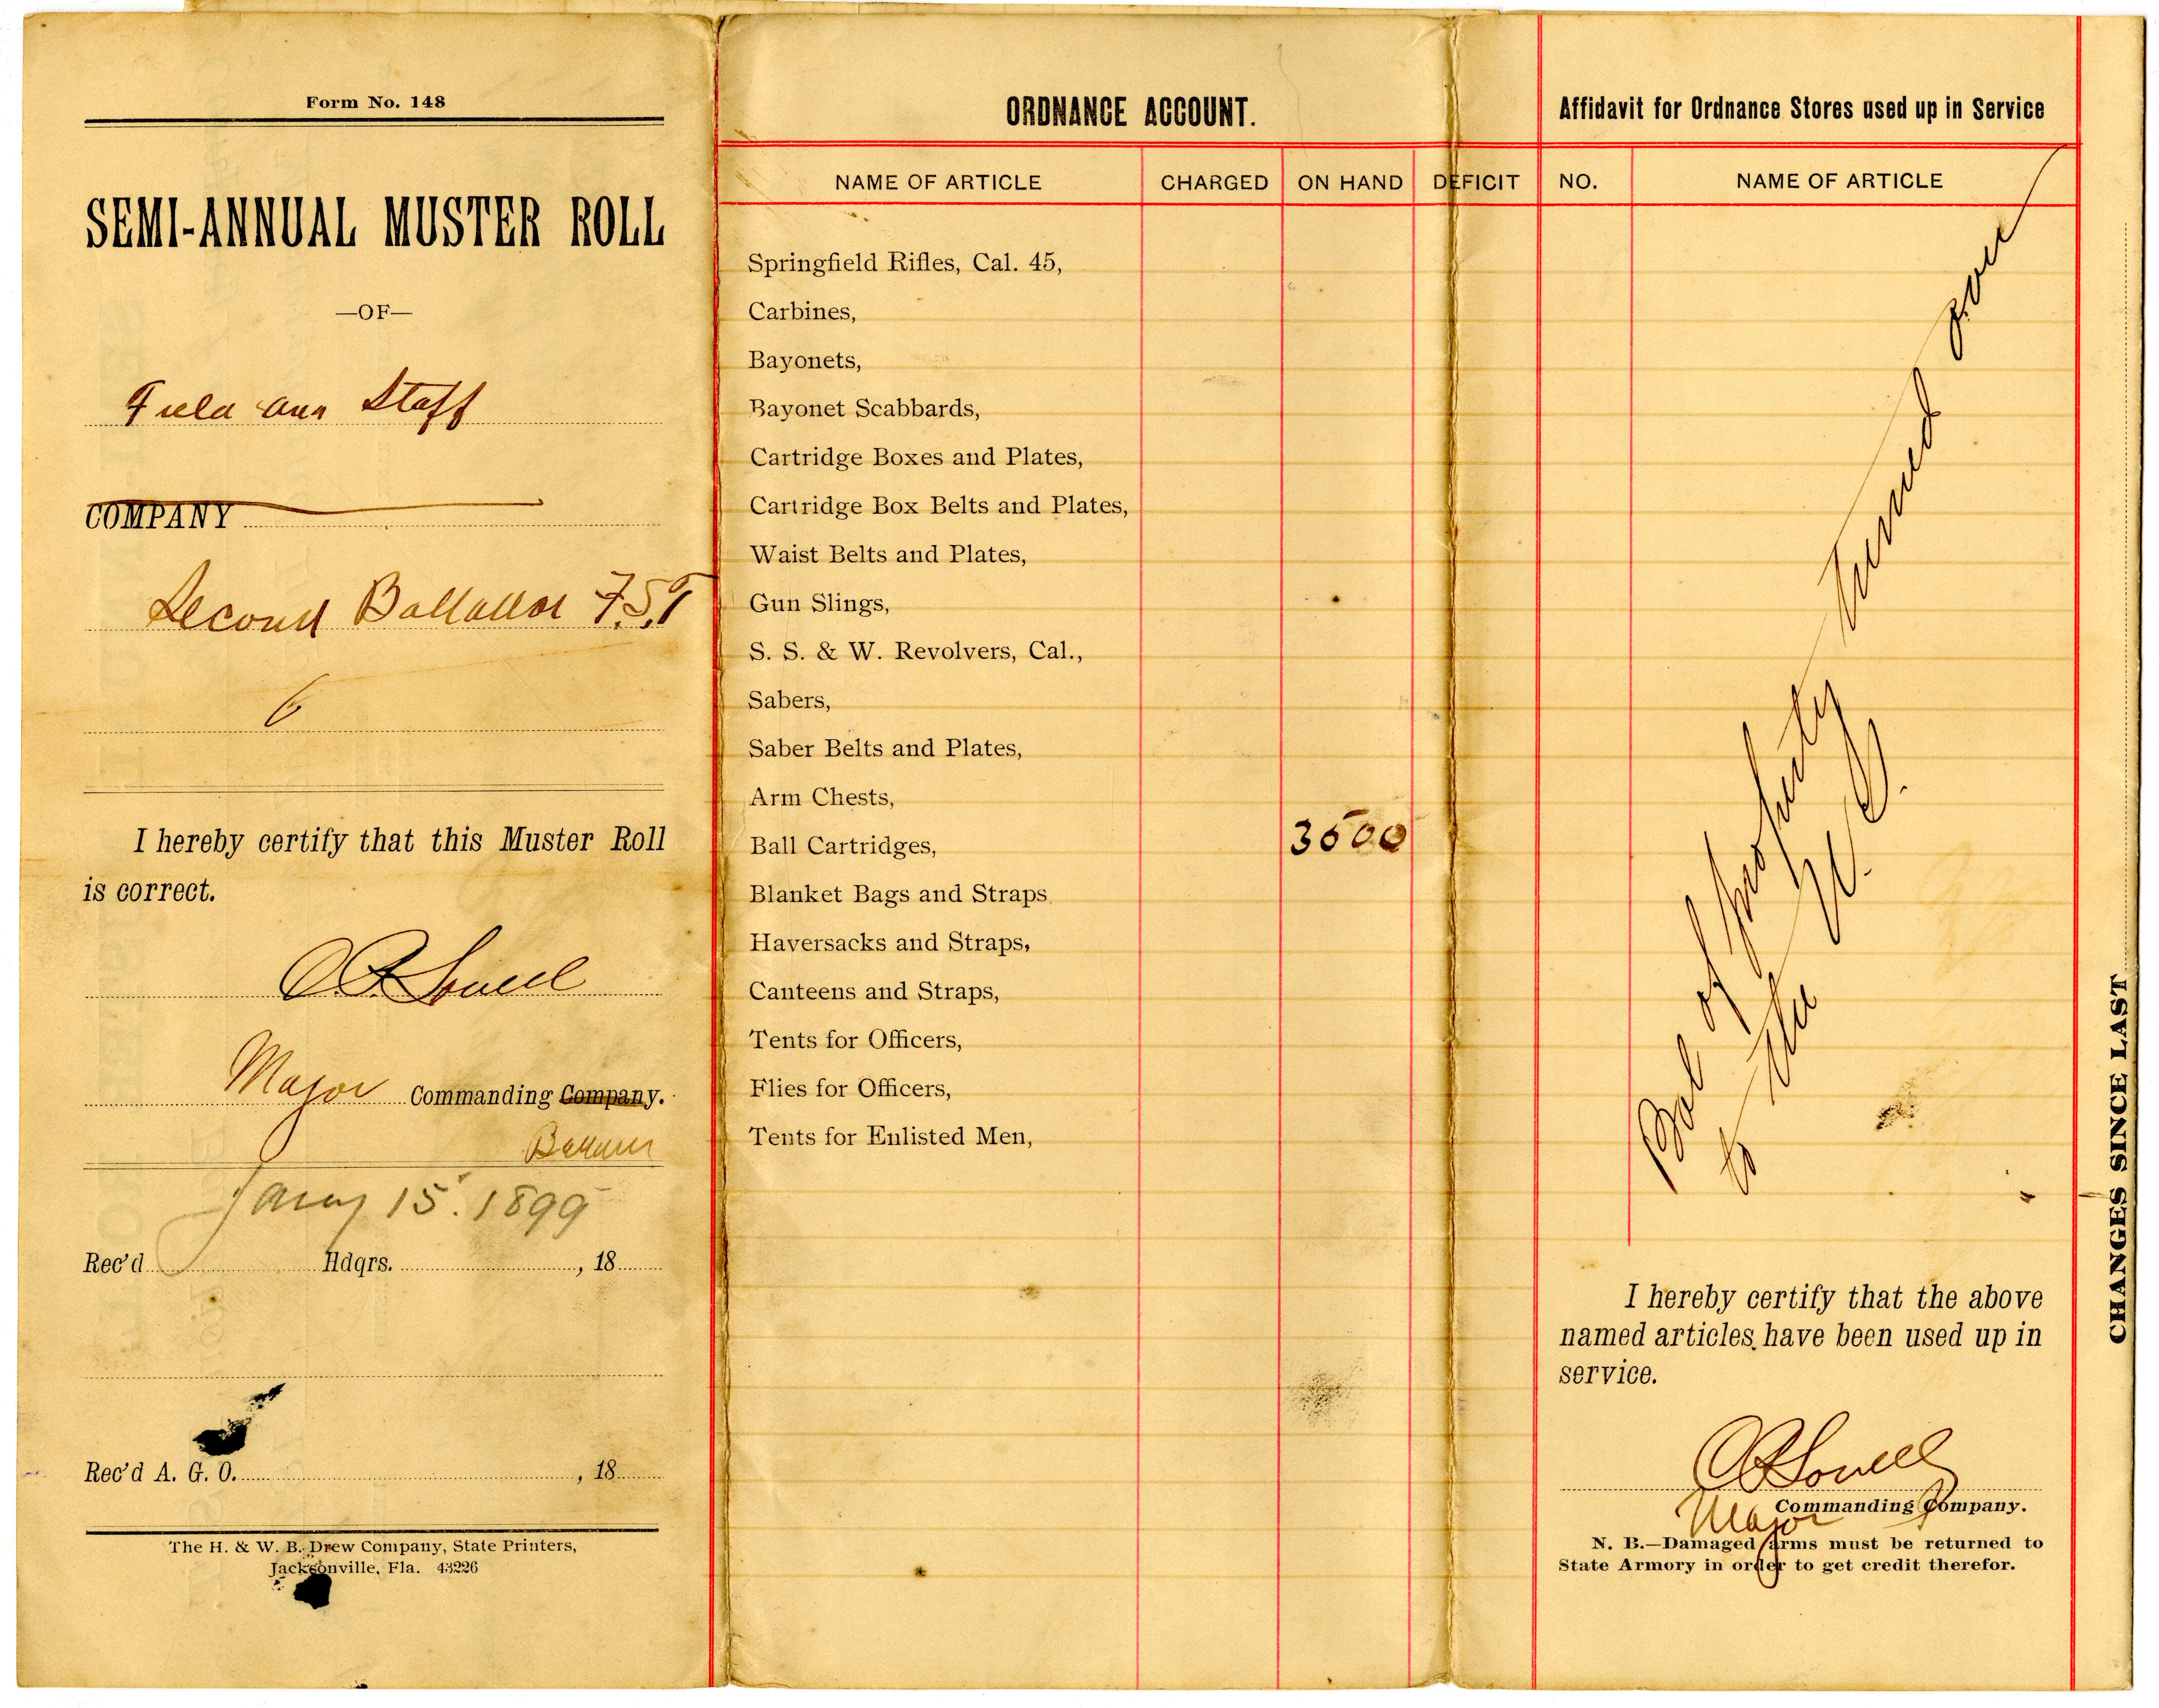 Form No. 148
SEMI-ANNUAL MUSTER ROLL
—OF—
Field and Staff
COMPANY
Second Battalion F.S.T
6
I hereby certify that this Muster Roll
is correct.
Major Commanding Company.
Battalion
Jany 15. 1899
Rec'd Hdqrs. , 18
Rec'd A. G. O. , 18
The H. & W. B. Drew Company, State Printers,
Jacksonville, Fla. 43226
ORDNANCE ACCOUNT.
NAME OF ARTICLE CHARGED ON HAND DEFICIT
Springfield Rifles, Cal. 45,
Carbines,
Bayonets,
Bayonet Scabbards,
Cartridge Boxes and Plates,
Cartridge Box Belts and Plates,
Waist Belts and Plates,
Gun Slings,
S. S. & W. Revolvers, Cal.,
Sabers,
Saber Belts and Plates,
Arm Chests,
Ball Cartridges, 3500
Blanket Bags and Straps
Haversacks and Straps,
Canteens and Straps,
Tents for Officers,
Flies for Officers,
Tents for Enlisted Men,
Affidavit for Ordnance Stores used up in Service
NO. NAME OF ARTICLE
Bal of property turned over
to the U. S.
I hereby certify that the above
named articles have been used up in
service.
Commanding Company.
Major
N. B.—Damaged arms must be returned to
State Armory in order to get credit therefor.
CHANGES SINCE LAST